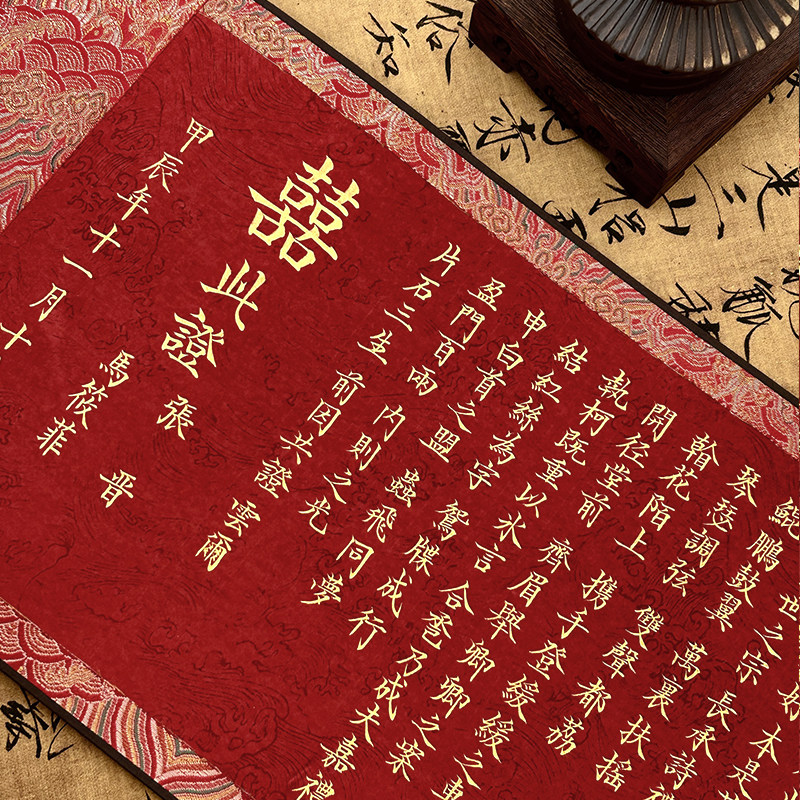 好 本是
世之宗 長承詩禮
鯤鵬鼓翼 萬裏扶搖
琴瑟調弦 雙聲都荔
幹花陌上 攜手登緩緩之車
開徑堂前 齊眉舉卿卿之案
執柯既重以氷言 合巹乃成夫嘉禮
結紅絲為字 鴛牒成行
申白首之盟 蟲飛同夢
盈門百兩 內則之光
片石三生 前因共證 雲爾
囍此證
張晋
馬筱菲
甲辰年十一月十